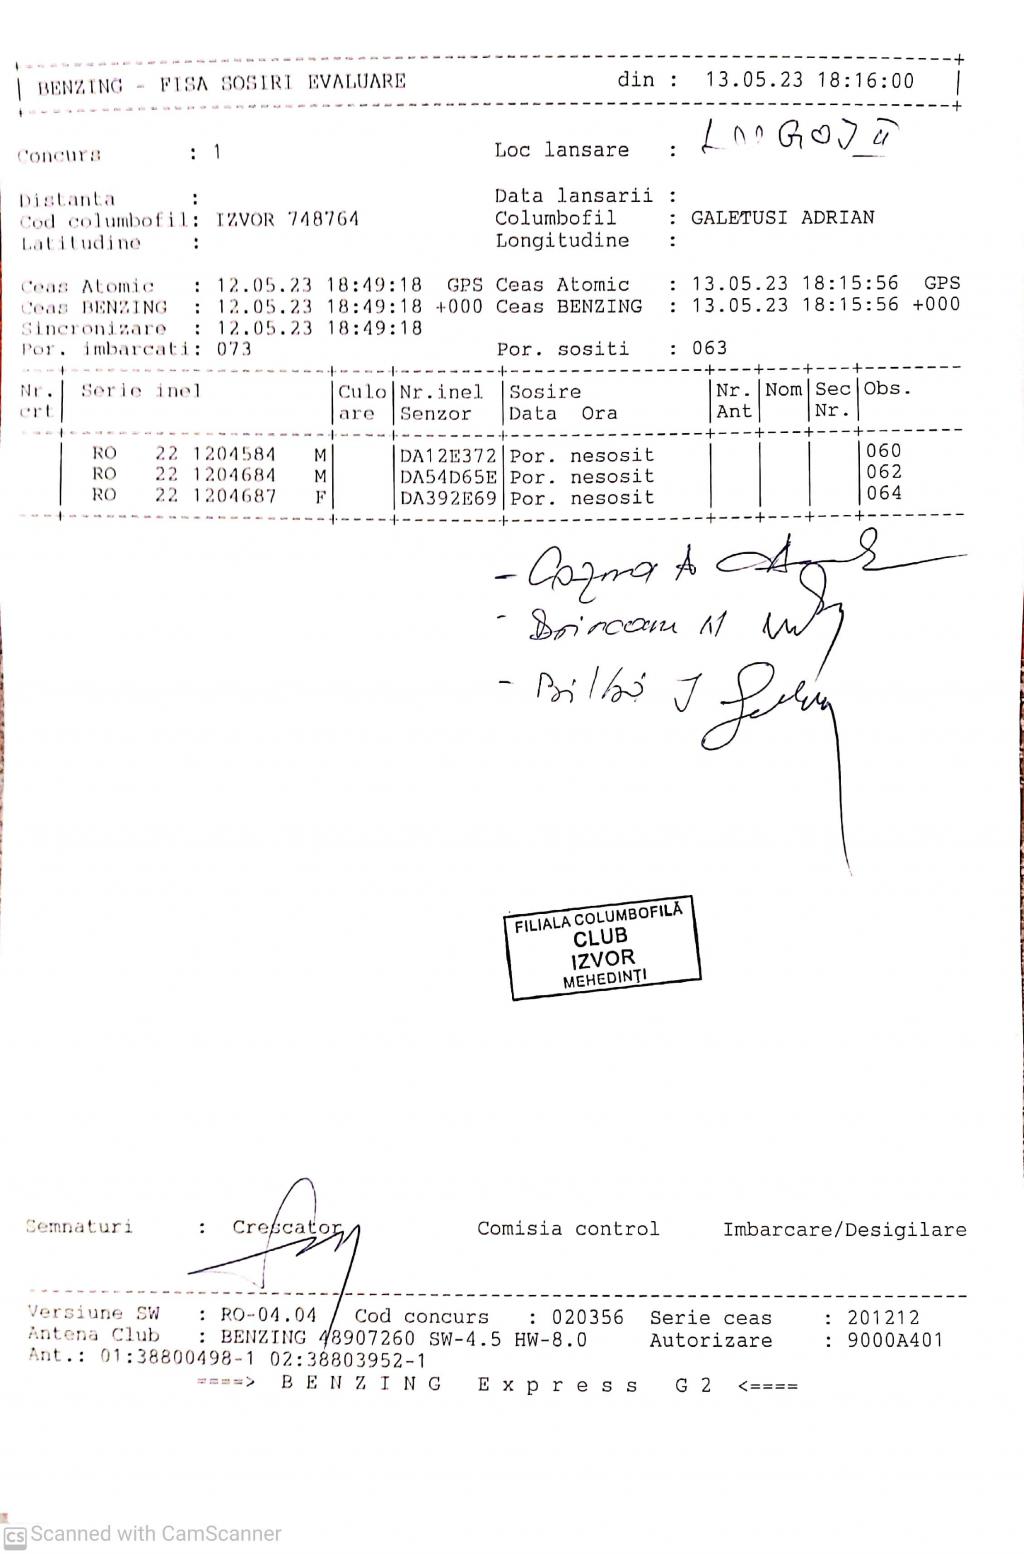 BENZING - FISA SOSIRI EVALUARE din : 13.05.23 18:16:00
Concurs : 1 Loc lansare : LUGOJ II
Distanta : Data lansarii :
Cod columbofil: IZVOR 748764 Columbofil : GALETUSI ADRIAN
Latitudine : Longitudine :
Ceas Atomic : 12.05.23 18:49:18 GPS Ceas Atomic : 13.05.23 18:15:56 GPS
Ceas BENZING : 12.05.23 18:49:18 +000 Ceas BENZING : 13.05.23 18:15:56 +000
Sincronizare : 12.05.23 18:49:18
Por. imbarcati: 073 Por. sositi : 063
Nr. Serie inel Culo Nr.inel Sosire Nr. Nom Sec Obs.
crt are Senzor Data Ora Ant Nr.
RO 22 1204584 M DA12E372 Por. nesosit 060
RO 22 1204684 M DA54D65E Por. nesosit 062
RO 22 1204687 F DA392E69 Por. nesosit 064
- Cozma A
-
-
FILIALA COLUMBOFILĂ
CLUB
IZVOR
MEHEDINȚI
Semnaturi : Crescator Comisia control Imbarcare/Desigilare
Versiune SW : RO-04.04 Cod concurs : 020356 Serie ceas : 201212
Antena Club : BENZING 48907260 SW-4.5 HW-8.0 Autorizare : 9000A401
Ant.: 01:38800498-1 02:38803952-1
====> B E N Z I N G E x p r e s s G 2 <====
CS Scanned with CamScanner